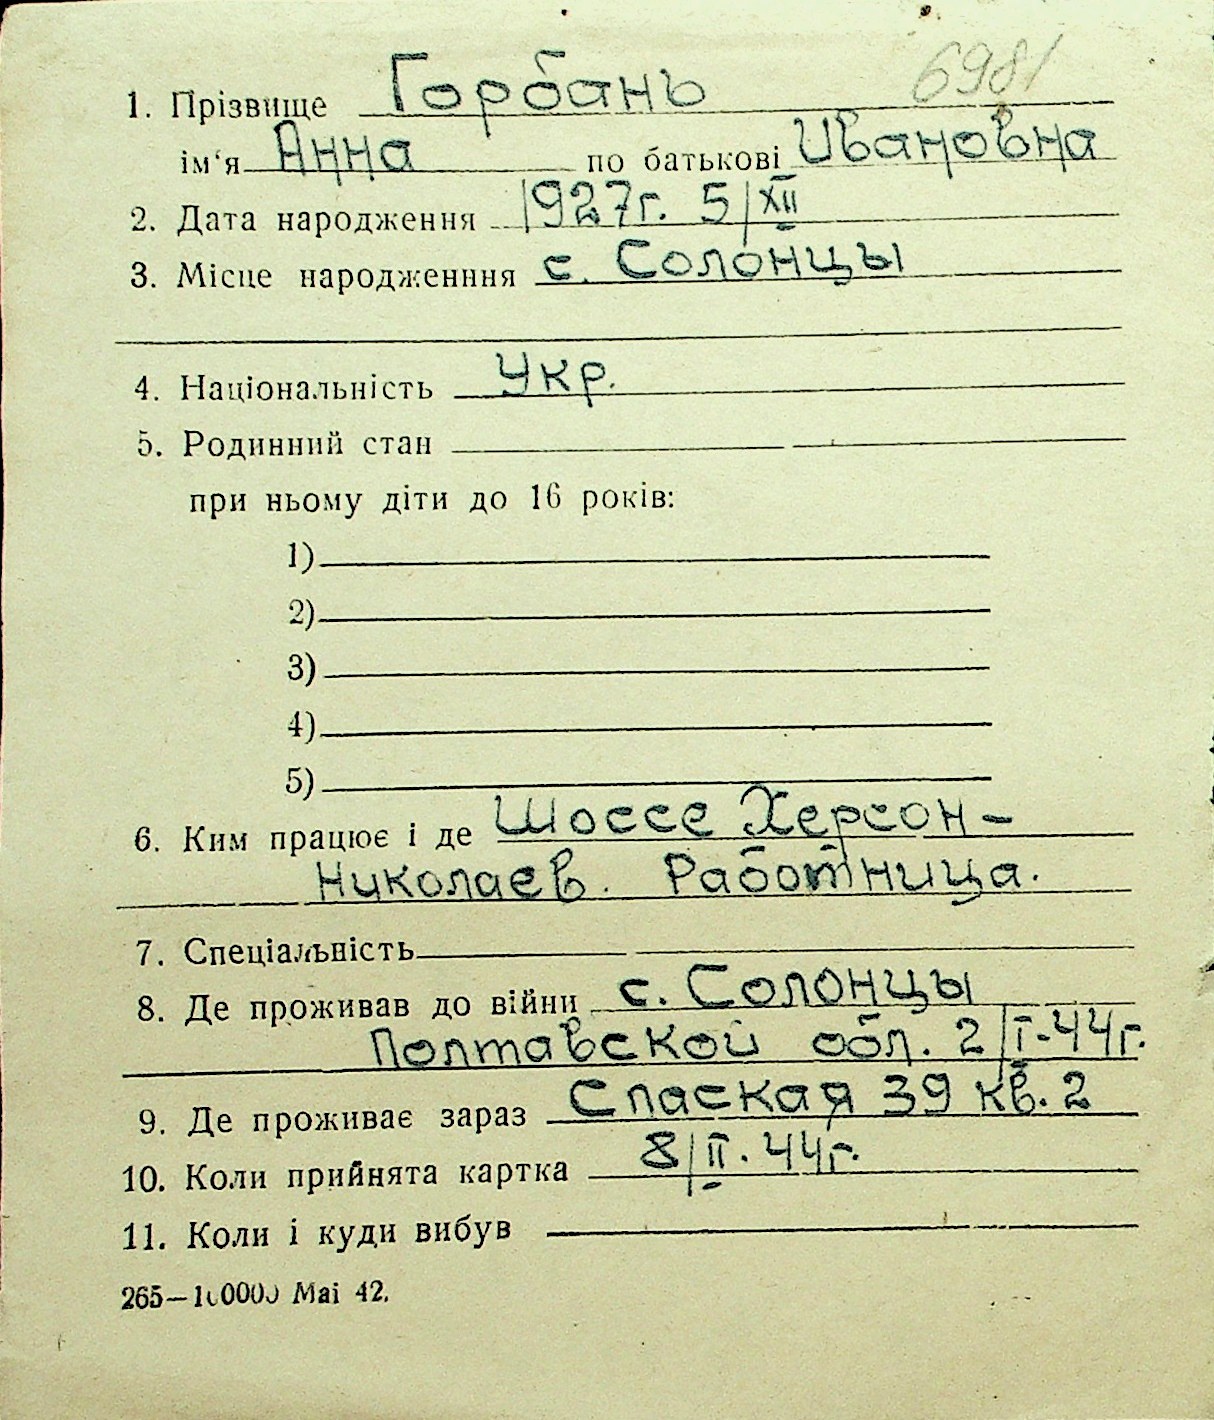 6981
1. Прізвище Горбань
ім‘я Анна по батькові Ивановна
2. Дата народження 1927г. 5/XII
3. Місце народженння с. Солонцы
4. Національність Укр.
5. Родинний стан
при ньому діти до 16 років:
1)
2)
3)
4)
5)
6. Ким працює і де Шоссе Херсон-
Николаев. Работница.
7. Спеціальність
8. Де проживав до війни с. Солонцы
Полтавской обл. 2/I-44г.
9. Де проживає зараз Спаская 39 кв. 2
10. Коли прийнята картка 8/II. 44г.
11. Коли і куди вибув
265—100000 Mai 42.